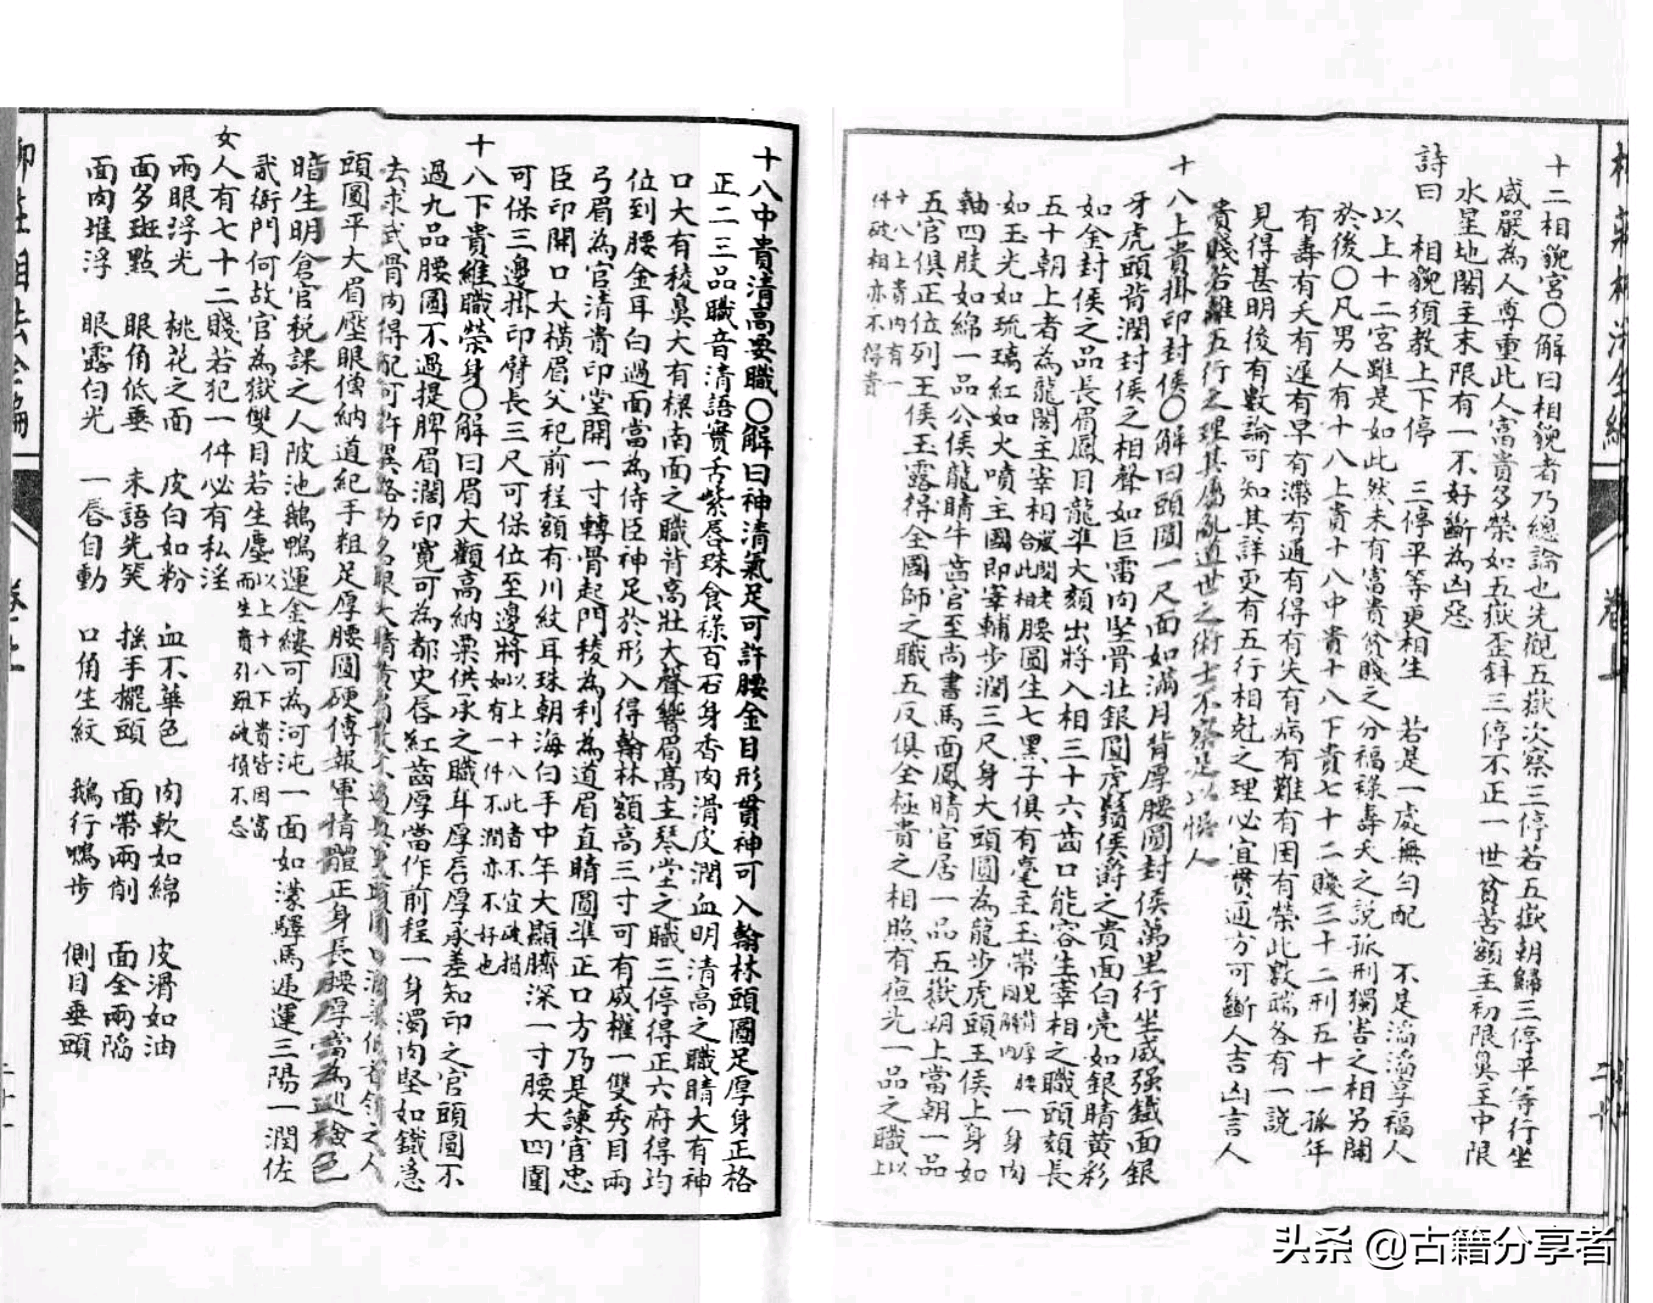 十二相貌宮〇解曰相貌者乃總論也先觀五嶽次察三停若五嶽朝歸三停平等行坐
威嚴為人尊重此人富貴多榮如五嶽歪斜三停不正一世貧苦額主初限鼻主中限
水星地閣主末限有一不好斷為凶惡
詩曰　相貌須教上下停　三停平等更相生　若是一處無勻配　不是滔滔享福人
以上十二宮雖是如此然未有富貴貧賤之分福祿壽夭之說孤刑獨害之相另開
於後〇凡男人有十八上貴十八中貴十八下貴七十二賤三十二刑五十一孤年
有壽有夭有遲有早有滯有通有得有失有病有難有困有榮此數端各有一說
見得甚明後有數論可知其詳更有五行相尅之理必宜貫通方可斷人吉凶言人
貴賤若離五行之理其屬亂道世之術士不察是以悞人
十八上貴掛印封侯〇解曰頭圓一尺面如滿月背厚腰圓封侯萬里行坐威强鐵面銀
牙虎頭背濶封侯之相聲如巨雷肉堅骨壯銀圓虎鬚侯爵之貴面白亮如銀睛黄彩
如金封侯之品長眉鳳目龍準大顏出將入相三十六齒口能容生宰相之職頭頦長
五十朝上者為龍閣主宰相合此相腰圓生七黑子俱有毫主玉帶背厚腰一身肉
如玉光如琉璃紅如火噴主國即宰輔步濶三尺身大頭圓為龍步虎頭王侯上身如
軸四肢如綿一品公侯龍睛牛齒官至尚書馬面鳳睛官居一品五嶽朝上當朝一品
五官俱正位列王侯玉露得全國師之職五反俱全極貴之相照有疸光一品之職以上
十八上貴內有一
件破相亦不得貴
十八中貴清高要職〇解曰神清氣足可許腰金目形貫神可入翰林頭圓足厚身正格
正二三品職音清語實舌紫唇珠食祿百石身香肉滑皮潤血明清高之職睛大有神
口大有稜鼻大有樑南面之職背高壯大聲響眉高主琴堂之職三停得正六府得均
位到腰金耳白過面當為侍臣神足於形入得翰林額高三寸可有威權一雙秀目兩
弓眉為官清貴印堂開一寸轉骨起門稜為利為道眉直睛圓準正口方乃是諫官忠
臣印開口大橫眉父祀前程額有川紋耳珠朝海白手中年大顯臍深一寸腰大四圍
可保三邊掛印臂長三尺可保位至邊將以上十八此者不宜破損
如有一件不潤亦不好也
十八下貴維職榮身〇解曰眉大顴高納粟供承之職耳厚唇厚承差知印之官頭圓不
過九品腰圓不過提牌眉濶印寬可為都史唇紅齒厚當作前程一身濁肉堅如鐵急
去求武骨肉得配可許異路功名
頭圓平大眉壓眼僧納道紀手粗足厚腰圓硬傳報軍情體正身長腰厚當為巡檢色
暗生明倉官稅課之人陂池鵝鴨運金縷可為河沌一面如濛驛馬遞運三陽一潤佐
貳衙門何故官為獄雙目若生塵以上十八下貴皆因富
而生貴引雖破損不忌
女人有七十二賤若犯一件必有私淫
兩眼浮光　桃花之面　皮白如粉　血不華色　肉軟如綿　皮滑如油
面多斑點　眼角低垂　未語先笑　搖手擺頭　面帶兩削　面全兩陷
面肉堆浮　眼露白光　一唇自動　口角生紋　鵝行鴨步　側目垂頭
柳莊相法全編
卷上
头条 @古籍分享者